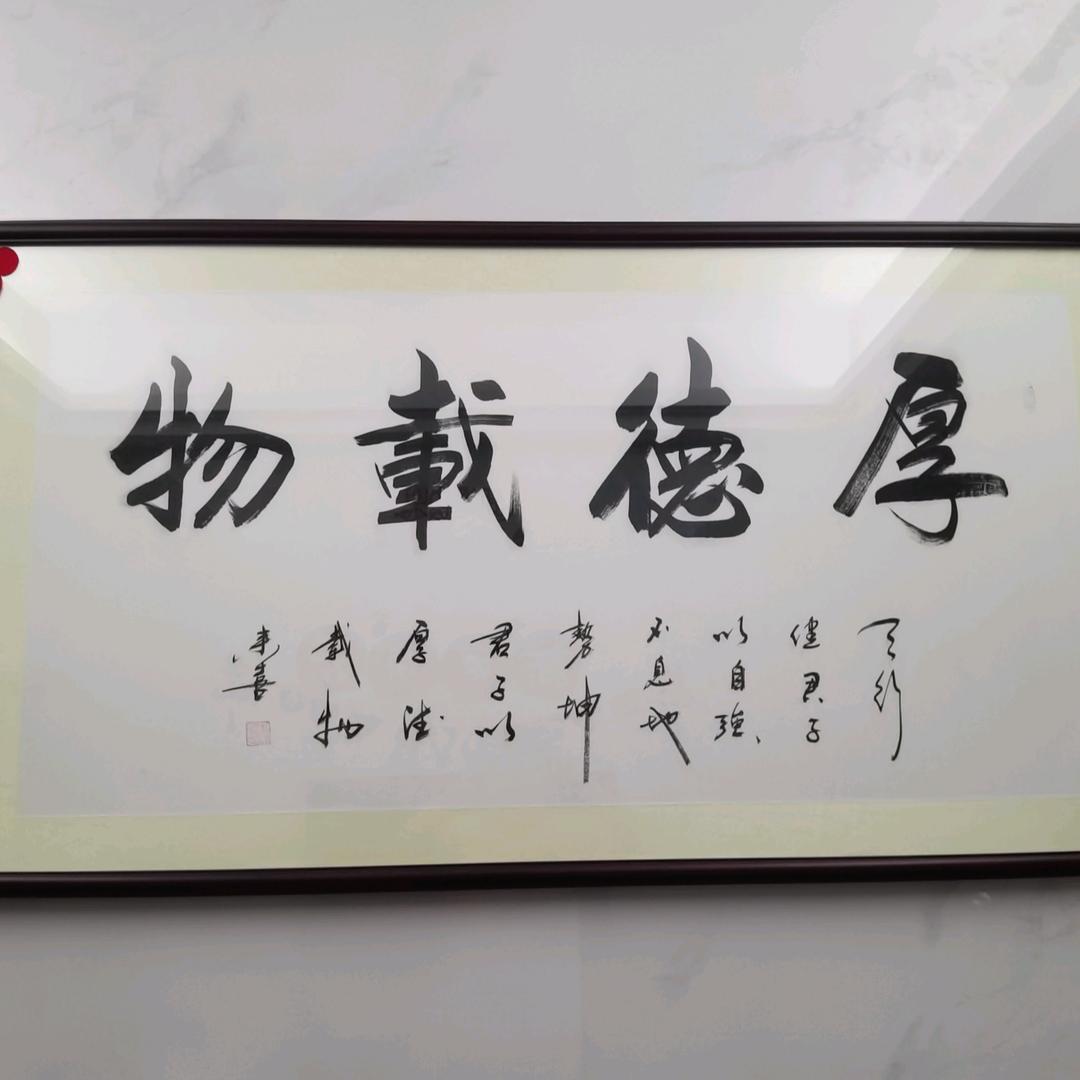 厚德載物
天行
健君子
以自强、
不息地
势坤
君子以
厚德
載物